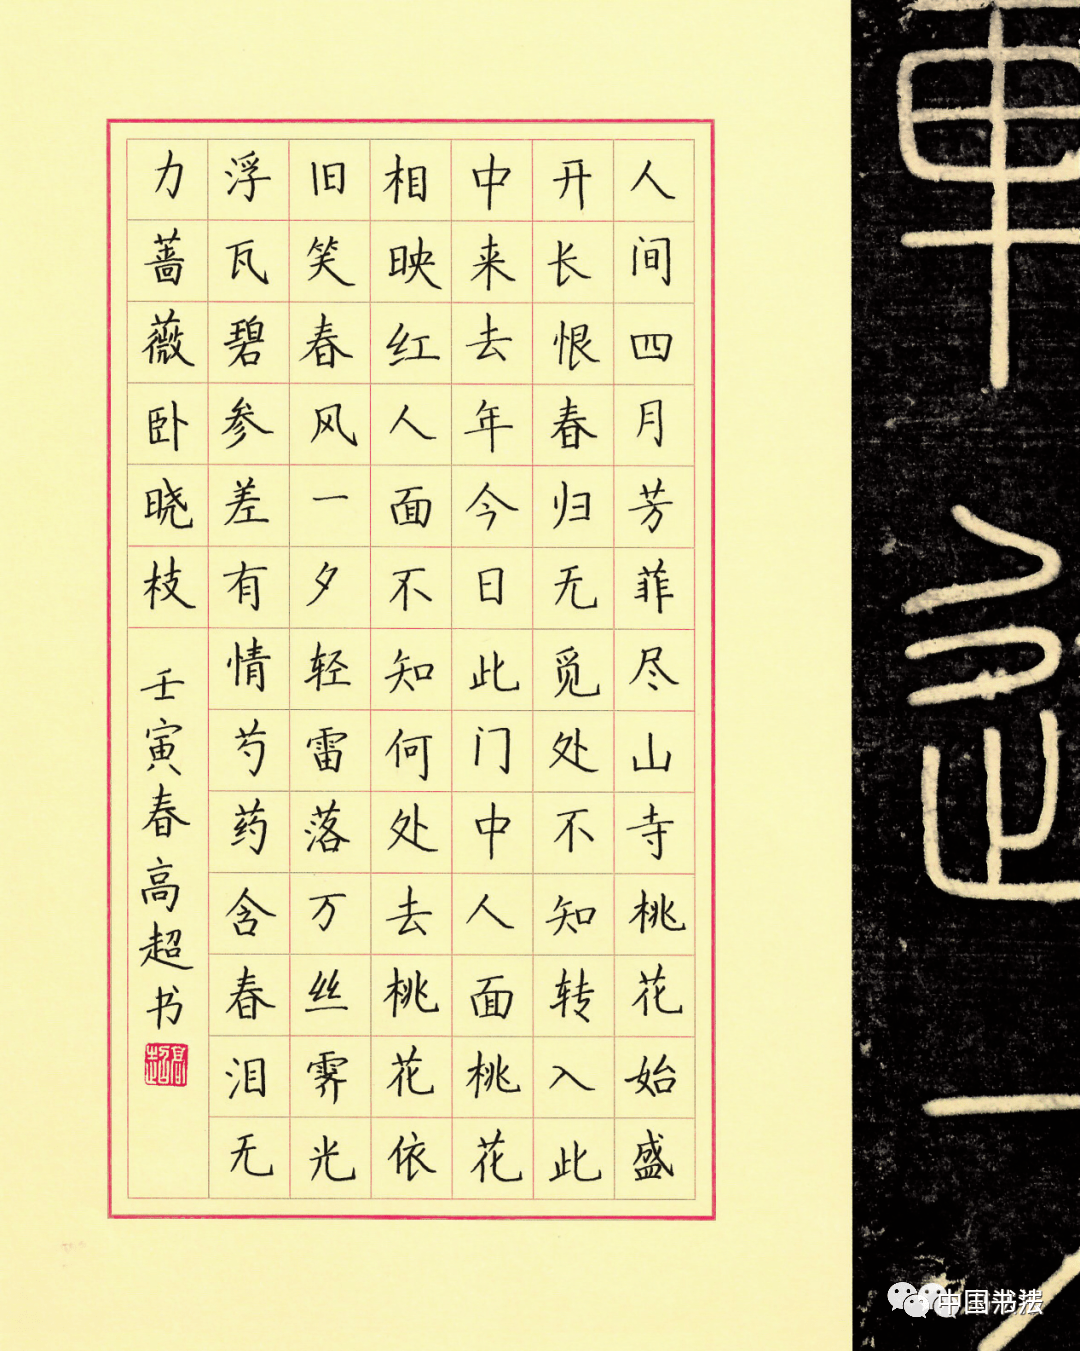 人间四月芳菲尽山寺桃花始盛
开长恨春归无觅处不知转入此
中来去年今日此门中人面桃花
相映红人面不知何处去桃花依
旧笑春风一夕轻雷落万丝霁光
浮瓦碧参差有情芍药含春泪无
力蔷薇卧晓枝
壬寅春高超书
高超
中国书法